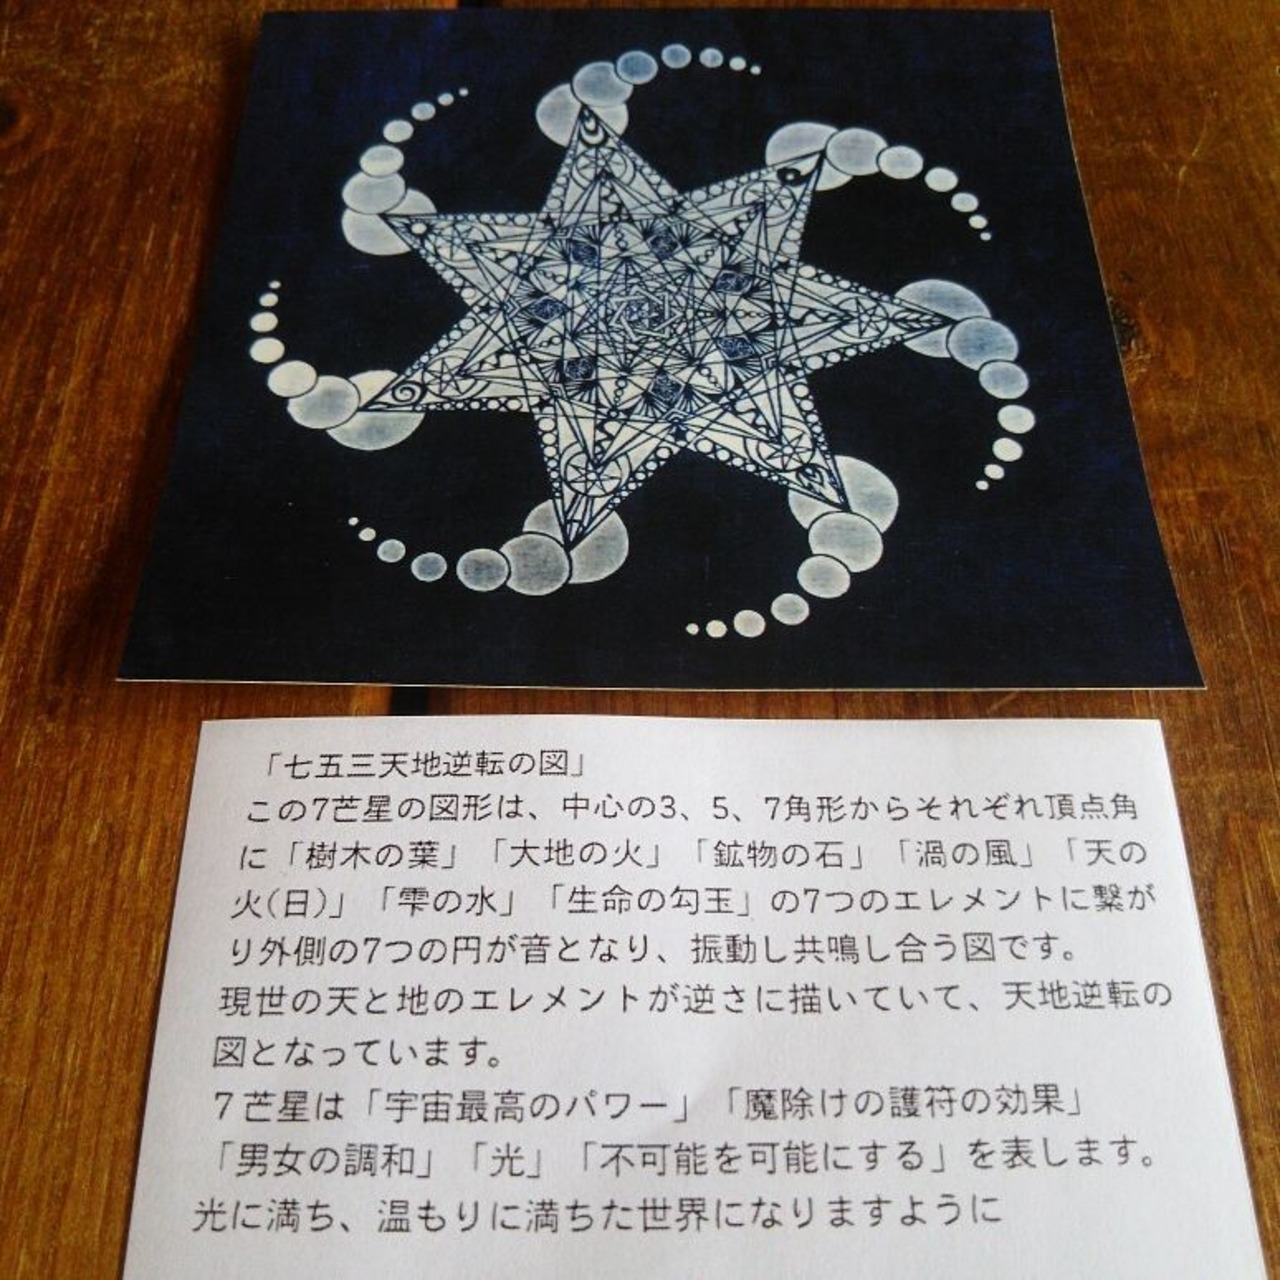 「七五三天地逆転の図」
この7芒星の図形は、中心の3、5、7角形からそれぞれ頂点角
に「樹木の葉」「大地の火」「鉱物の石」「渦の風」「天の
火(日)」「雫の水」「生命の勾玉」の7つのエレメントに繋が
り外側の7つの円が音となり、振動し共鳴し合う図です。
現世の天と地のエレメントが逆さに描いていて、天地逆転の
図となっています。
7芒星は「宇宙最高のパワー」「魔除けの護符の効果」
「男女の調和」「光」「不可能を可能にする」を表します。
光に満ち、温もりに満ちた世界になりますように